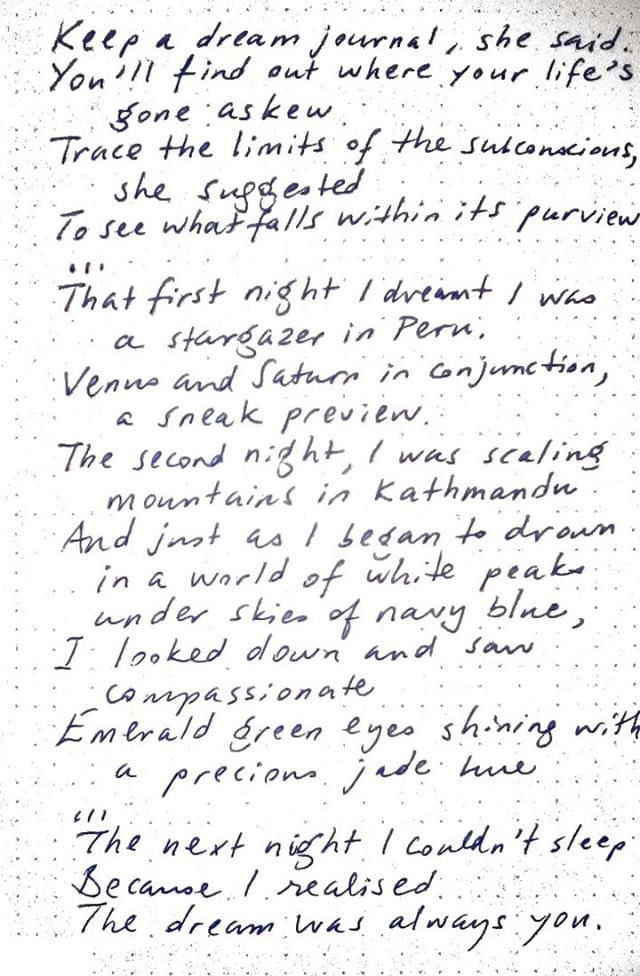 Keep a dream journal, she said.
You'll find out where your life's
gone askew
Trace the limits of the subconscious,
she suggested
To see what falls within its purview
...
That first night I dreamt I was
a stargazer in Peru.
Venus and Saturn in conjunction,
a sneak preview.
The second night, I was scaling
mountains in Kathmandu
And just as I began to drown
in a world of white peaks
under skies of navy blue,
I looked down and saw
compassionate
Emerald green eyes shining with
a precious jade hue
...
The next night I couldn't sleep
Because I realised
The dream was always you.